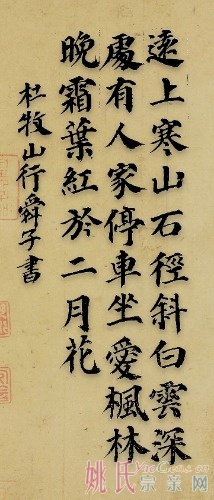 遠上寒山石徑斜白雲深
處有人家停車坐愛楓林
晚霜葉紅於二月花
杜牧山行舜子書
姚氏宗亲网